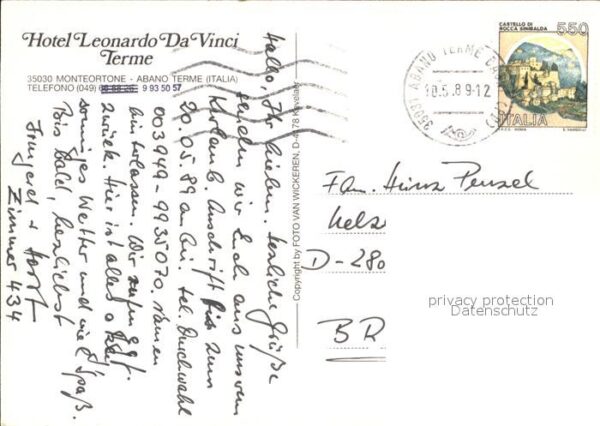 Hotel Leonardo Da Vinci
Terme
35030 MONTEORTONE - ABANO TERME (ITALIA)
TELEFONO (049) 9 93 50 57
Hallo, Ihr Lieben. Herzliche Grüße
senden wir Euch aus unserem
Urlaub. Anschrift bis zum
20.05.89 an bei. tel. Durchwahl
003949-9935070. namen
hinterlassen. Wir rufen ggf.
zurück. Hier ist alles o.k.
sonniges Wetter und viel Spaß.
Bis bald, herzlichst
Irmgard + Horst
Zimmer 434
Copyright by FOTO VAN WICKEREN, D-4178 Kevelaer
CASTELLO DI
ROCCA SINIBALDA
550
ITALIA
35031 ABANO TERME
10.5.89-12
Fam. Heinz Pensel
D-280
BR
privacy protection
Datenschutz